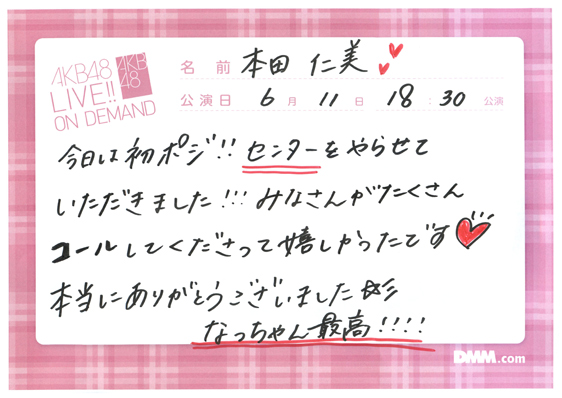 AKB48
LIVE!!
ON DEMAND
AKB
48
名前 本田 仁美
公演日 6月 11日 18:30公演
今日は初ポジ!! センターをやらせて
いただきました!!! みなさんがたくさん
コールしてくださって嬉しかったです
本当にありがとうございました
なっちゃん最高!!!!
DMM.com